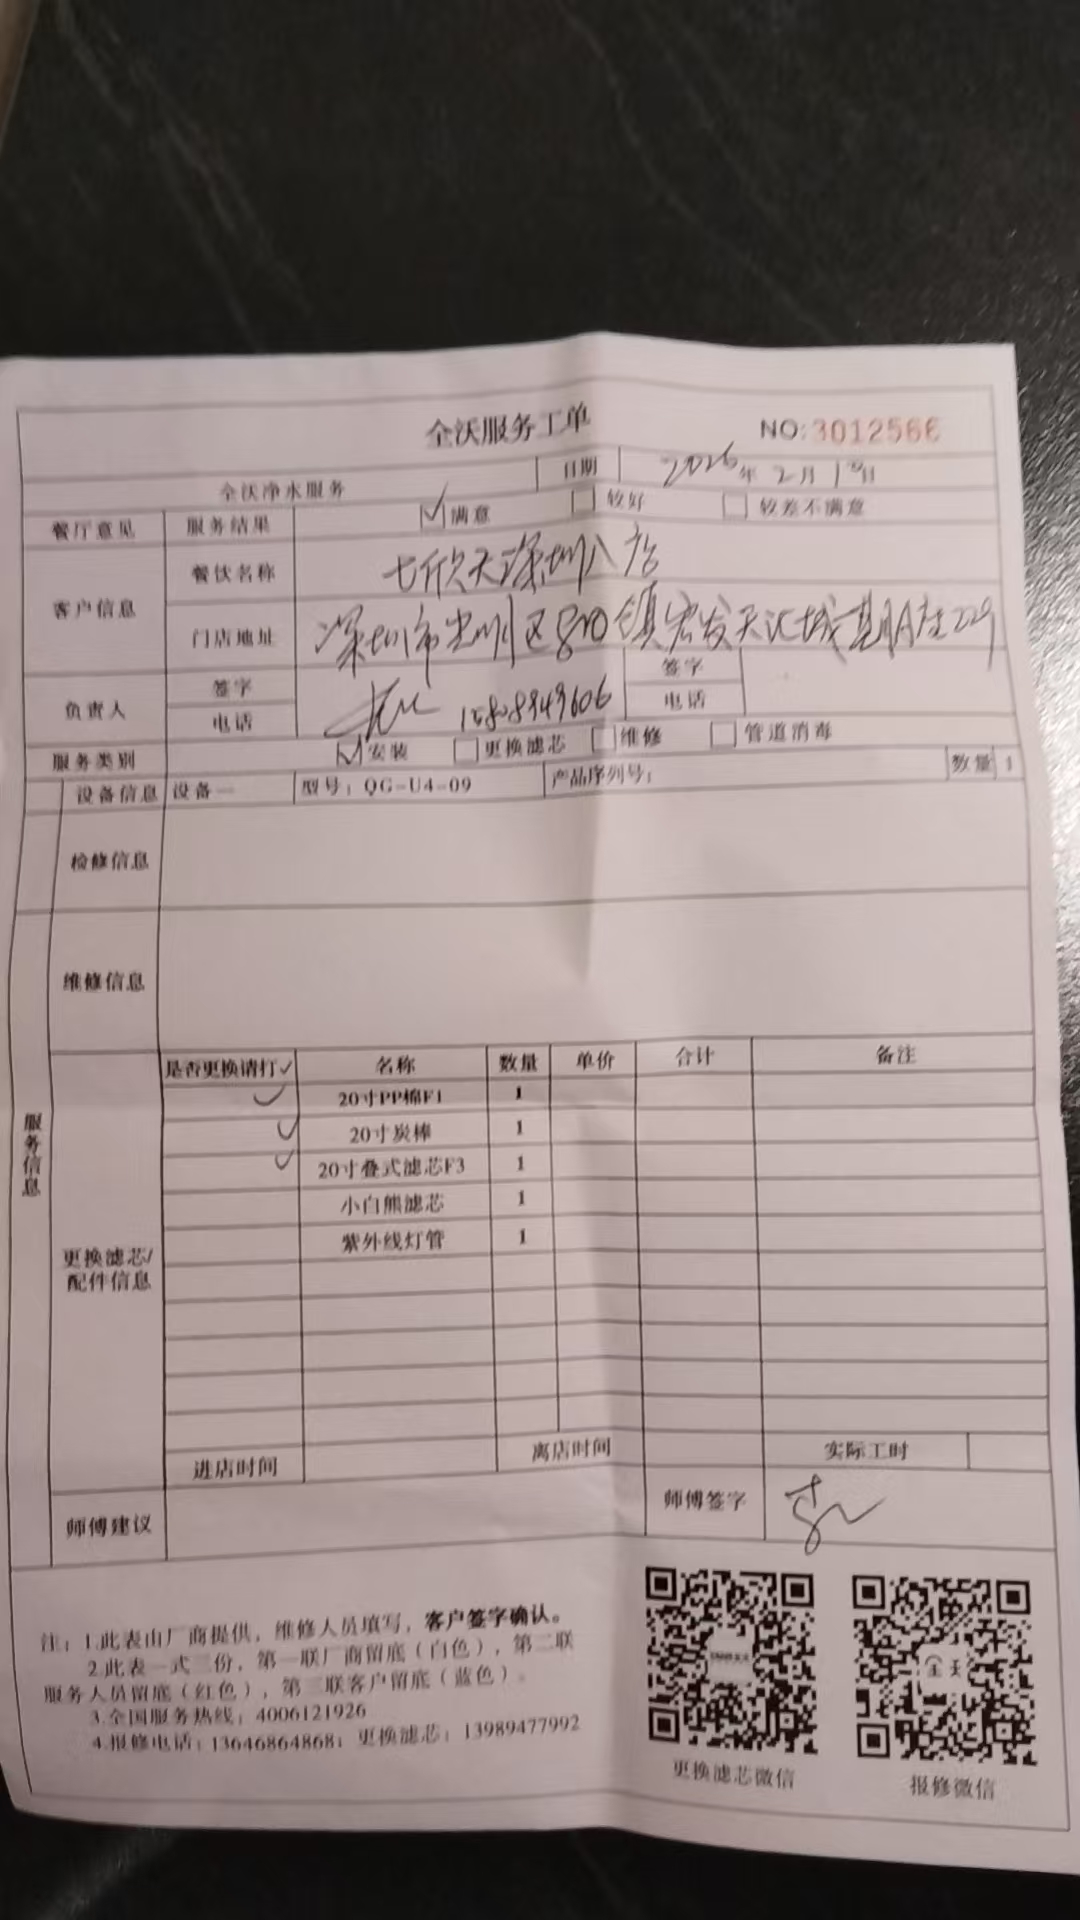 全沃服务工单
NO:3012566
全沃净水服务 日期 2026年2月1日
餐厅意见 服务结果 ✓满意 较好 较差不满意
客户信息 餐饮名称 七欣天深圳八店
门店地址 深圳市 区 镇宏发天汇城 A座229
负责人 签字 签字
电话 15808949606 电话
服务类别 ✓安装 更换滤芯 维修 管道消毒
设备信息 设备一 型号:QG-U4-09 产品序列号: 数量 1
检修信息
维修信息
服务信息
更换滤芯/配件信息
是否更换请打✓ 名称 数量 单价 合计 备注
✓ 20寸PP棉F1 1
✓ 20寸炭棒 1
✓ 20寸叠式滤芯F3 1
小白熊滤芯 1
紫外线灯管 1
进店时间 离店时间 实际工时
师傅建议 师傅签字
注:1.此表由厂商提供,维修人员填写,客户签字确认。
2.此表一式三份,第一联厂商留底(白色),第二联
服务人员留底(红色),第三联客户留底(蓝色)。
3.全国服务热线:4006121926
4.报修电话:13646864868;更换滤芯:13989477992
更换滤芯微信
报修微信